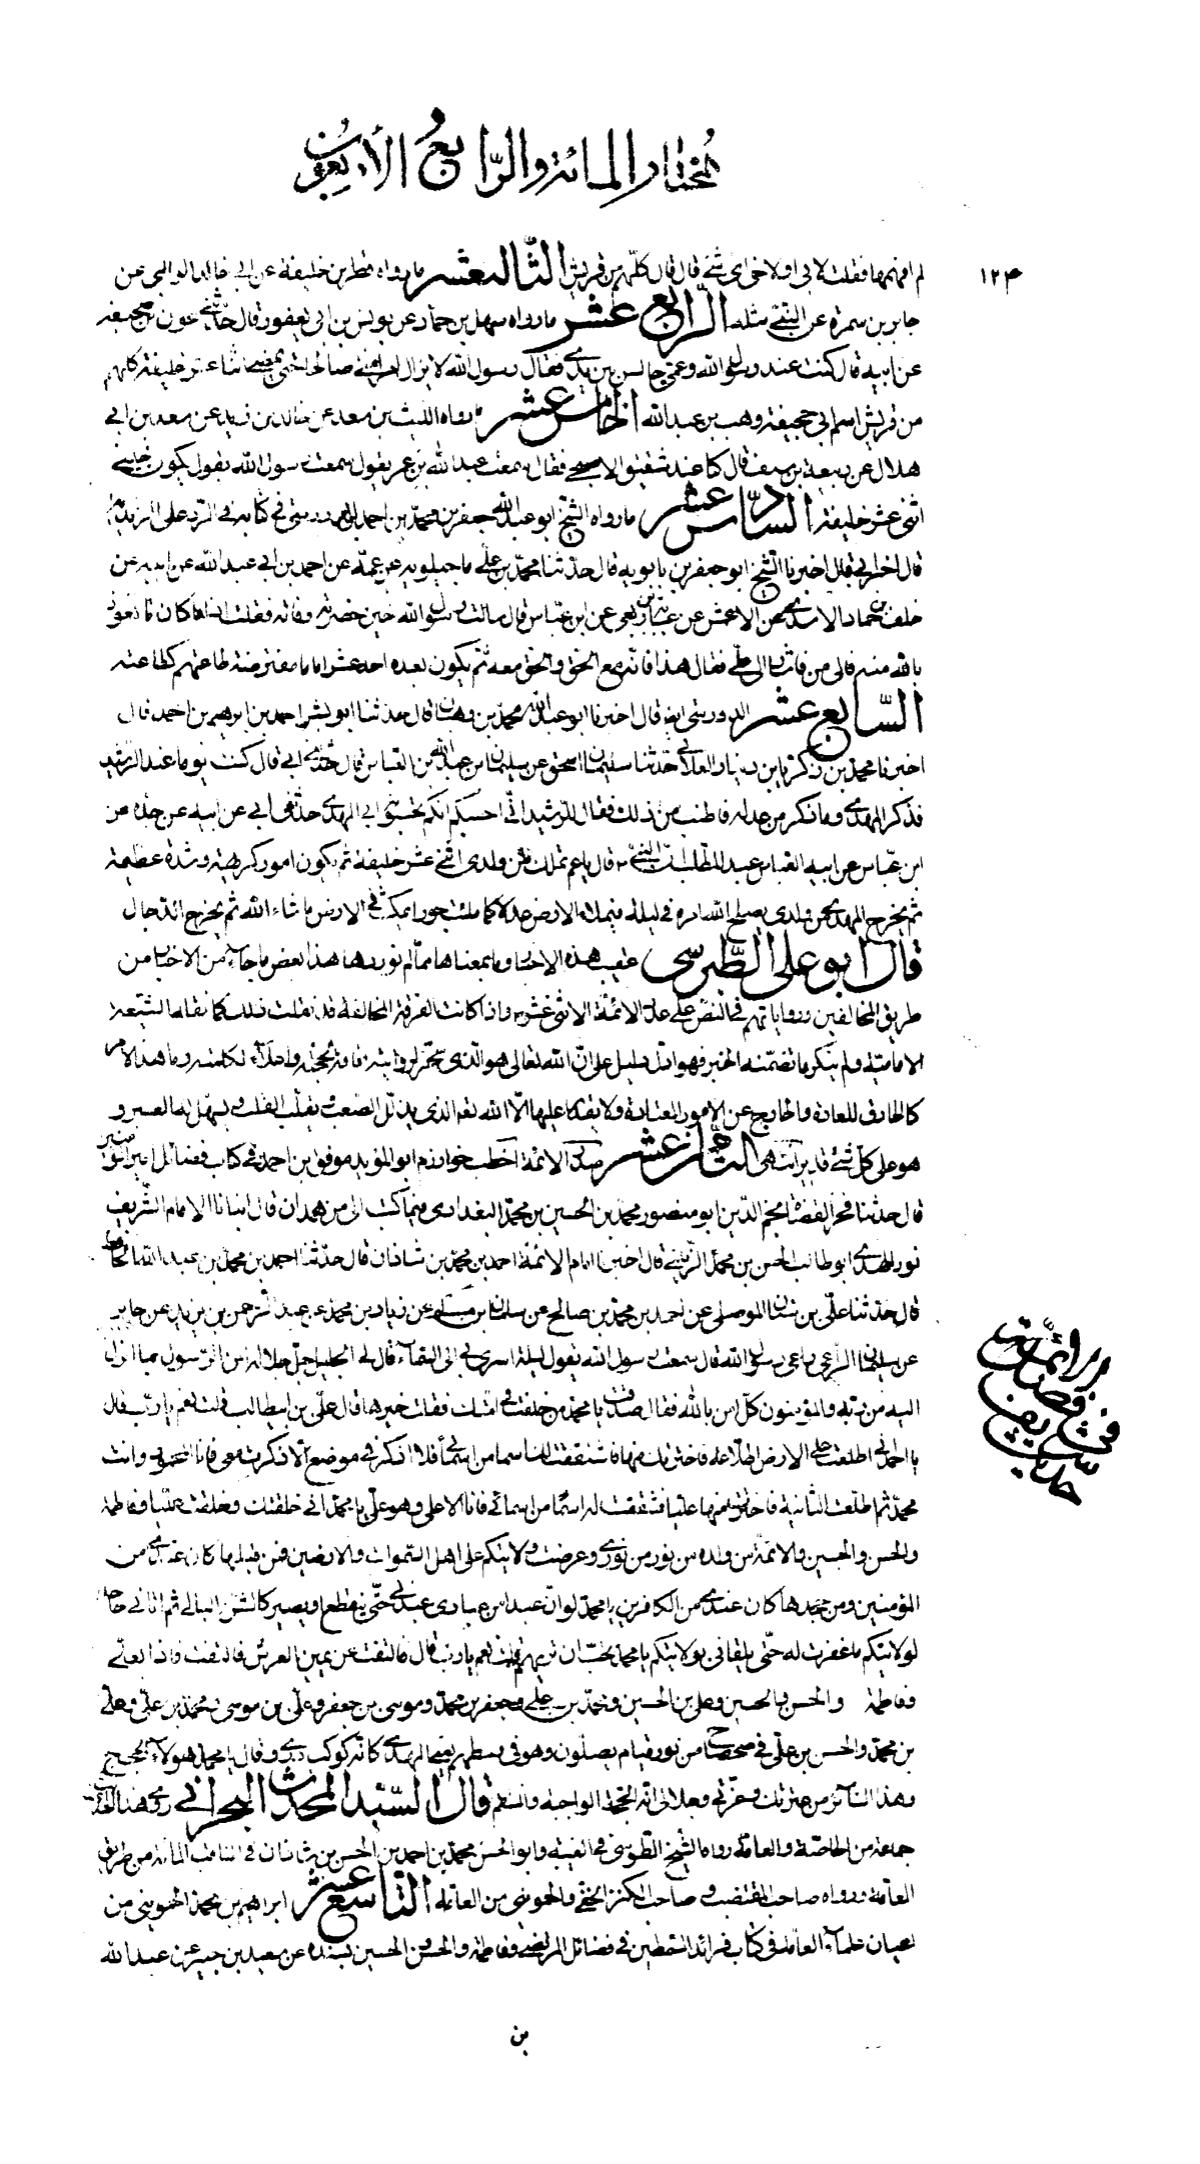 المختار المائة والرابع الأربعون
١٢٣
لم افهمها فقلت لابى او لاخى اى شئ قال قال كلهم من قريش الثالث عشر ما رواه فطر بن خليفة عن ابى خالد الوالبى عن
جابر بن سمرة عن النبى مثله الرابع عشر ما رواه سهل بن حماد عن يونس بن ابى يعفور قال حدثنى عون بن ابى جحيفة
عن ابيه قال كنت عند رسول الله وعمى جالس بين يدى فقال رسول الله لا يزال امر امتى صالحا حتى يمضى اثنا عشر خليفة كلهم
من قريش اسم ابى جحيفة وهب بن عبد الله الخامس عشر ما رواه الليث بن سعد عن خالد بن زيد عن سعد بن ابى
هلال عن ربيعة بن سيف قال كنا عند شفيق الاصبحى فقال سمعت عبد الله بن عمر يقول سمعت رسول الله يقول يكون خلفى
اثنى عشر خليفة السادس عشر ما رواه الشيخ ابو عبد الله جعفر بن محمد بن احمد الدوريستى فى كتابه فى الرد على الزيدية
قال اخبرنى ابى قال اخبرنا الشيخ ابو جعفر بن بابويه قال حدثنا محمد بن على ماجيلويه عن عمه عن احمد بن ابى عبد الله عن ابيه عن
خلف بن حماد الاسدى عن الاعمش عن عباية بن ربعى عن ابن عباس قال سالت رسول الله حين حضرته وفاته فقلت اذا كان ما نعوذ
بالله منه فالى من فاشار الى على فقال هذا فانه مع الحق والحق معه ثم يكون بعده احد عشر اماما مفترضة طاعتهم كطاعته
السابع عشر الدوريستى ايضا قال اخبرنا ابو عبد الله محمد بن وهبان قال حدثنا ابو بشر احمد بن ابرهيم بن احمد قال
اخبرنا محمد بن زكريا بن دينار الغلابى حدثنا سليمان بن اسحق عن سليمان بن عبد الله بن العباس قال حدثنى ابى قال كنت يوما عند الرشيد
فذكر المهدى وما ذكر من عدله فاطنب من ذلك فقال الرشيد انى احسبكم انكم تحسبونه ابى المهدى حدثنى ابى عن ابيه عن جده عن
ابن عباس عن ابيه العباس بن عبد المطلب ان النبى قال يا عم يملك من ولدى اثنى عشر خليفة ثم يكون امور كريهة وشدة عظيمة
ثم يخرج المهدى من ولدى يصلح الله امره فى ليلة فيملأ الارض عدلا كما ملئت جورا ويمكث فى الارض ما شاء الله ثم يخرج الدجال
قال ابو على الطبرسى عقيب هذه الاخبار وما بمعناها مما لم نوردها هذا بعض ما جاء من الاخبار من
طريق المخالفين ورواياتهم فى النص على عدد الائمة الاثنى عشر واذا كانت الفرقة المخالفة قد نقلت ذلك كما نقلته الشيعة
الامامية ولم ينكر ما تضمنه الخبر فهو ادل دليل على ان الله تعالى هو الذى سخرهم لروايته اقامة لحجته واعلاء لكلمته وما هذا الامر
كالخارق للعادة والخارج عن الامور المعتادة ولا يقدر عليها الا الله تعالى الذى يذلل الصعب ويقلب القلب ويسهل له العسير و
هو على كل شئ قدير انتهى الثامن عشر صدر الائمة اخطب خوارزم ابو المؤيد موفق بن احمد فى كتاب فضائل امير المؤمنين
قال حدثنا فخر القضاة نجم الدين ابو منصور محمد بن الحسين بن محمد البغدادى فيما كتب الى من همدان قال انبانا الامام الشريف
نور الهدى ابو طالب الحسن بن محمد الزينبى قال اخبرنا امام الائمة احمد بن محمد بن شاذان قال حدثنا احمد بن محمد بن عبد الله الحافظ
قال حدثنا على بن سنان الموصلى عن احمد بن محمد بن صالح عن سلمان بن محمد عن زياد بن محمد عن عبد الرحمن بن يزيد عن جابر
عن سلمان الراعى راعى رسول الله قال سمعت رسول الله يقول ليلة اسرى بى الى السماء قال لى الجليل جل جلاله امن الرسول بما انزل
اليه من ربه والمؤمنون كل امن بالله فقال صدقت يا محمد من خلفت فى امتك فقلت خيرها قال على بن ابيطالب قلت نعم يا رب قال
يا احمد انى اطلعت على الارض اطلاعة فاخترتك منها فشققت لك اسما من اسمائى فلا اذكر فى موضع الا ذكرت معى فانا المحمود وانت
محمد ثم اطلعت الثانية فاخترت منها عليا فشققت له اسما من اسمائى فانا الاعلى وهو على يا محمد انى خلقتك وخلقت عليا وفاطمة
والحسن والحسين والائمة من ولده من نور من نورى وعرضت ولايتكم على اهل السموات والارضين فمن قبلها كان عندى من
المؤمنين ومن جحدها كان عندى من الكافرين يا محمد لو ان عبدا من عبادى عبدنى حتى ينقطع ويصير كالشن البالى ثم اتانى جاحدا
لولايتكم ما غفرت له حتى يلقانى بولايتكم يا محمد تحب ان تريهم قلت نعم يا رب قال فالتفت عن يمين العرش فالتفت فاذا بعلى
وفاطمة والحسن والحسين وعلى بن الحسين ومحمد بن على وجعفر بن محمد وموسى بن جعفر وعلى بن موسى ومحمد بن على وعلى
بن محمد والحسن بن على فى ضحضاح من نور قيام يصلون وهو فى وسطهم يعنى المهدى كانه كوكب درى وقال يا محمد هؤلاء الحجج
وهذا الثائر من عترتك وعزتى وجلالى انه الحجة الواجبة والمنتقم قال السيد المحدث البحرانى روى هذا الحديث
جماعة من الخاصة والعامة رواه الشيخ الطوسى فى الغيبة وابو الحسن محمد بن احمد بن الحسن بن شاذان فى المناقب المائة من طريق
العامة ورواه صاحب المقتضب وصاحب الكنز الخفى والحموينى من العامة التاسع عشر ابراهيم بن محمد الحموينى من
اعيان علماء العامة فى كتاب فرائد السمطين فى فضائل المرتضى وفاطمة والحسن والحسين بسنده عن سعيد بن جبير عن عبد الله
بن